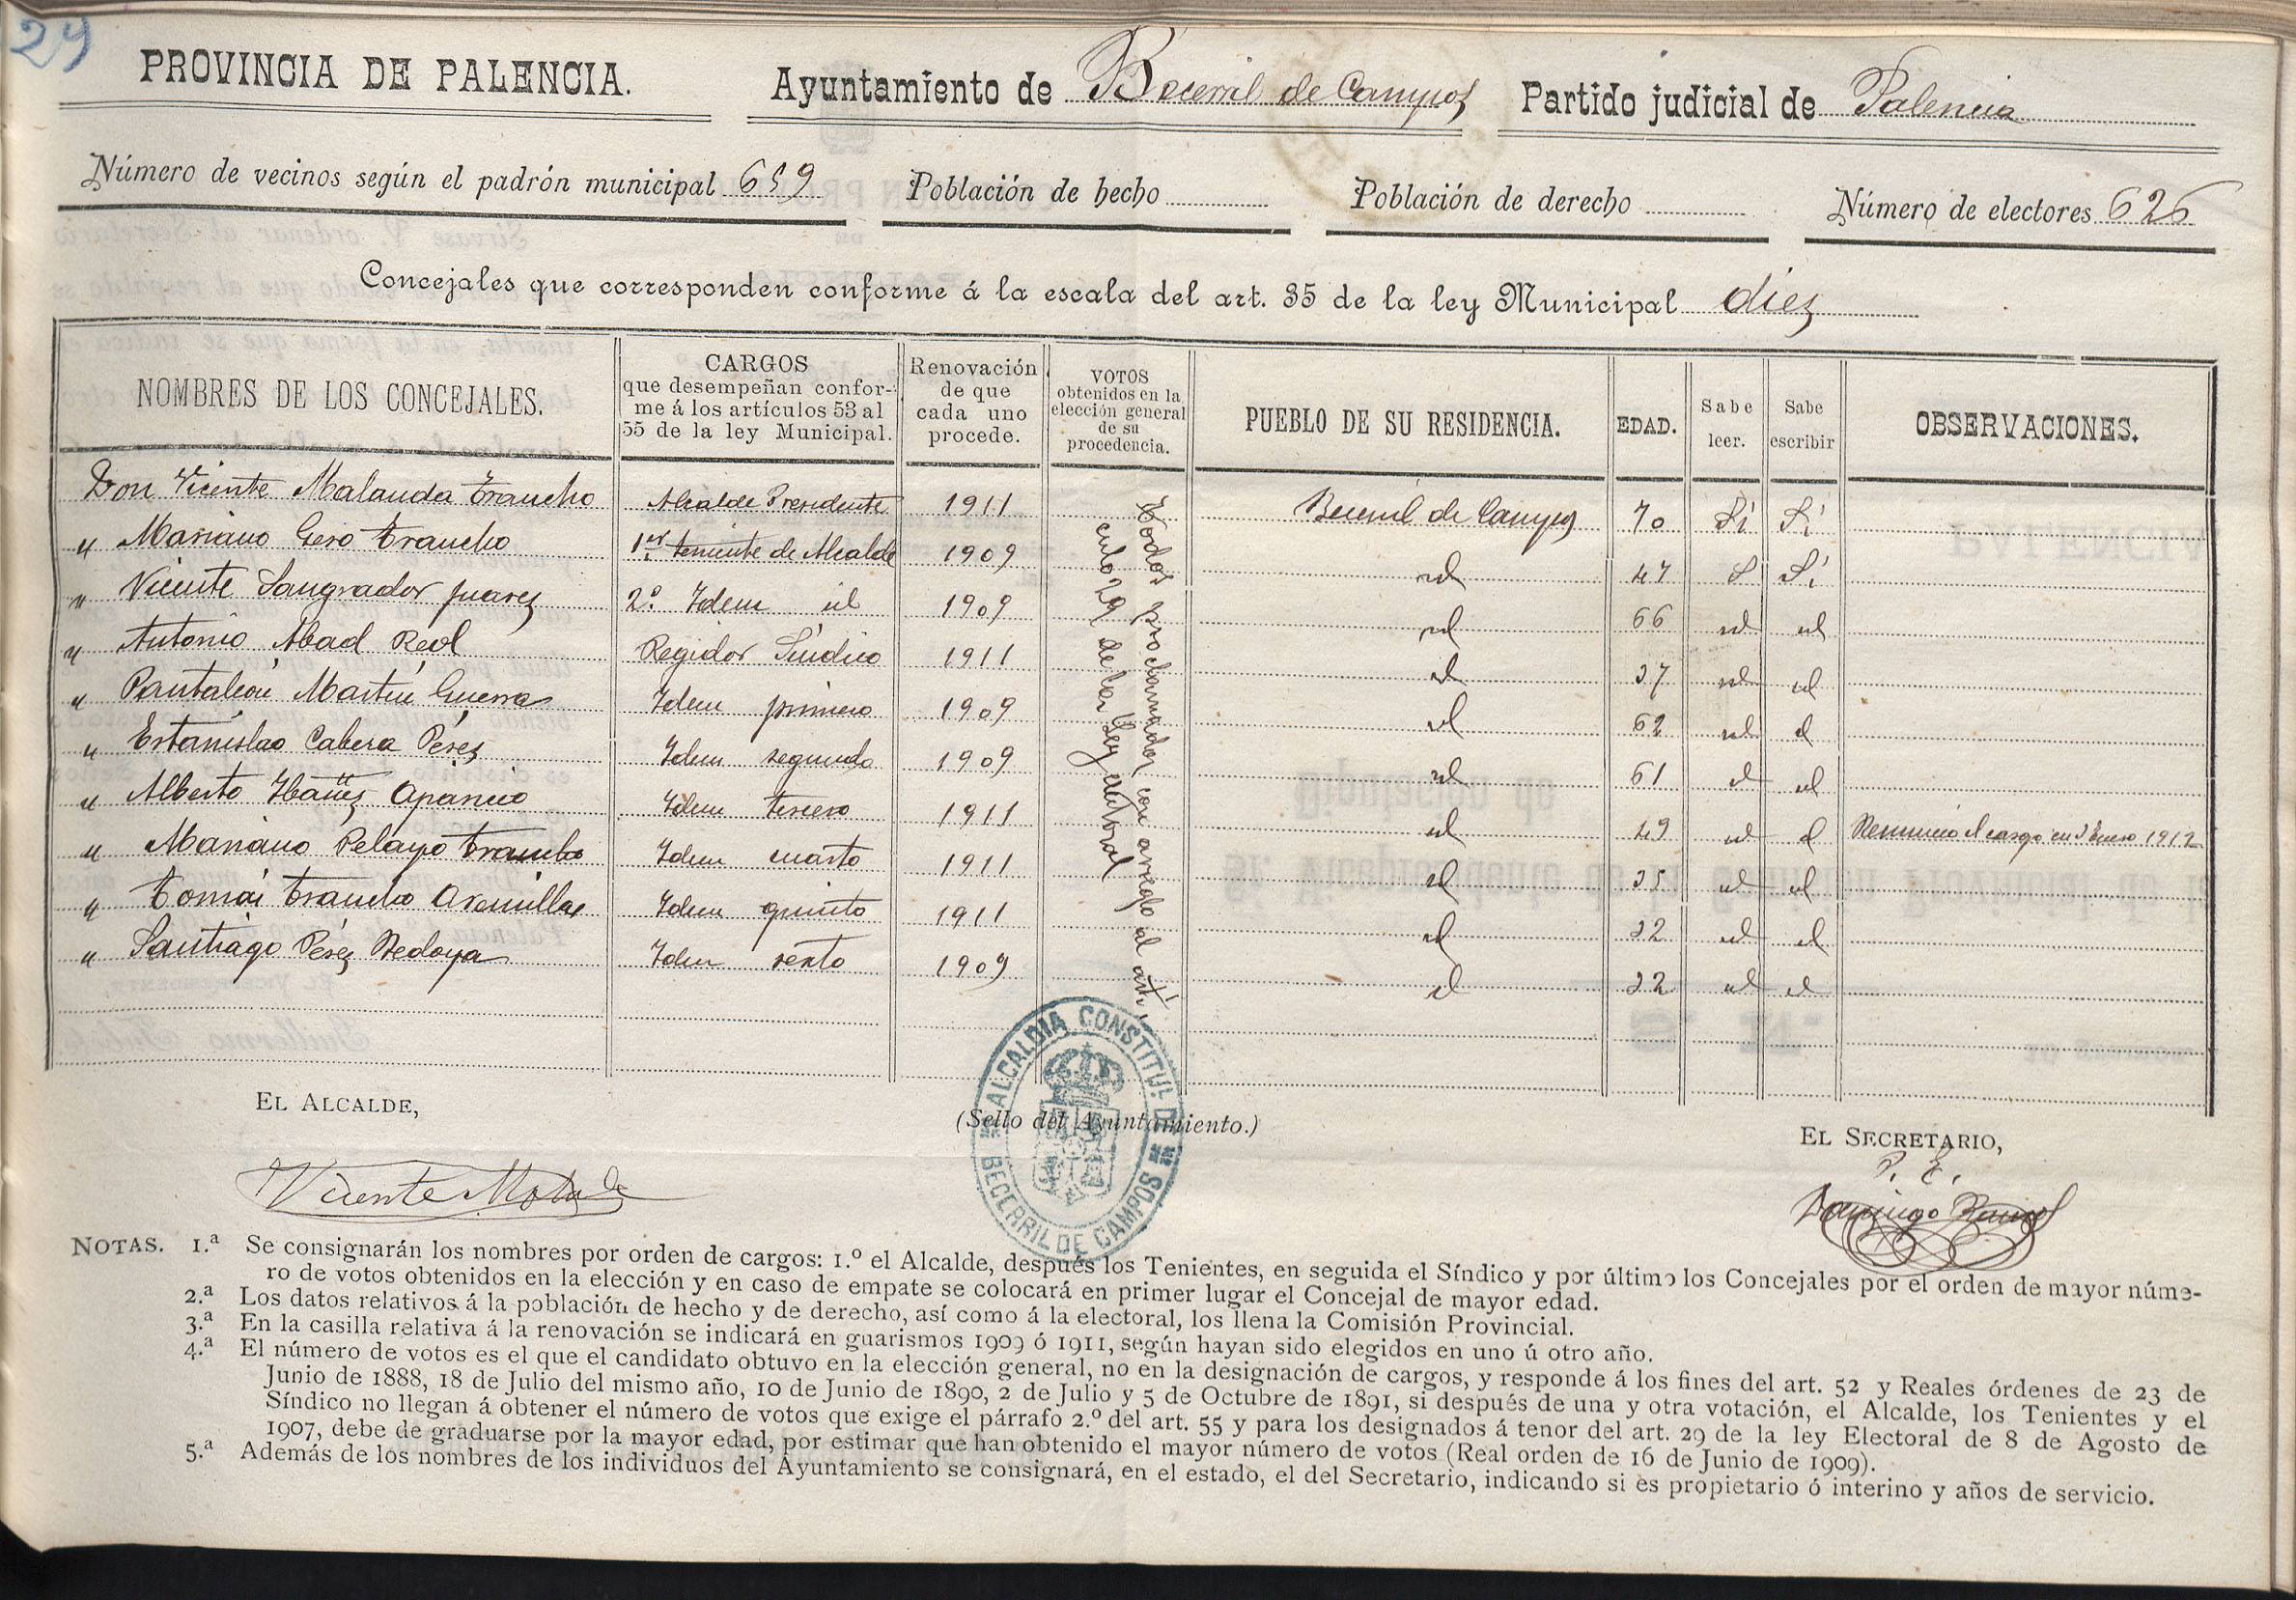 29
PROVINCIA DE PALENCIA. Ayuntamiento de Becerril de Campos Partido judicial de Palencia
Número de vecinos según el padrón municipal 659 Población de hecho Población de derecho Número de electores 626
Concejales que corresponden conforme á la escala del art. 35 de la ley Municipal diez
NOMBRES DE LOS CONCEJALES.
CARGOS
que desempeñan confor-
me á los artículos 53 al
55 de la ley Municipal.
Renovación
de que
cada uno
procede.
VOTOS
obtenidos en la
elección general
de su
procedencia.
PUEBLO DE SU RESIDENCIA.
EDAD.
Sabe
leer.
Sabe
escribir
OBSERVACIONES.
Don Vicente Malanda Trancho Alcalde Presidente 1911 Becerril de Campos 70 Sí Sí
" Mariano Gero Trancho 1er teniente de Alcalde 1909 id 47 S Sí
" Vicente Sangrador Juarez 2º Idem id 1909 id 66 id id
" Antonio Abad Reol Regidor Síndico 1911 id 37 id id
" Pantaleón Martín Guerra Idem primero 1909 id 62 id id
" Estanislao Cabeza Pérez Idem segundo 1909 id 61 id id
" Alberto Ibáñez Aparicio Idem tercero 1911 id 49 id id Renunció el cargo en 3 Enero 1912
" Mariano Pelayo Trancho Idem cuarto 1911 id 35 id id
" Tomás Trancho Aramillas Idem quinto 1911 id 32 id id
" Santiago Pérez Bedoya Idem sexto 1909 id 32 id id
Todos proclamados con arreglo al artí
culo 29 de la Ley electoral
EL ALCALDE,
(Sello del Ayuntamiento.)
EL SECRETARIO,
P. E.
Vicente Malanda
Domingo Ramos
ALCALDIA CONSTITUL. DE
BECERRIL DE CAMPOS
NOTAS. 1.ª Se consignarán los nombres por orden de cargos: 1.º el Alcalde, después los Tenientes, en seguida el Síndico y por último los Concejales por el orden de mayor núme-
ro de votos obtenidos en la elección y en caso de empate se colocará en primer lugar el Concejal de mayor edad.
2.ª Los datos relativos á la población de hecho y de derecho, así como á la electoral, los llena la Comisión Provincial.
3.ª En la casilla relativa á la renovación se indicará en guarismos 1909 ó 1911, según hayan sido elegidos en uno ú otro año.
4.ª El número de votos es el que el candidato obtuvo en la elección general, no en la designación de cargos, y responde á los fines del art. 52 y Reales órdenes de 23 de
Junio de 1888, 18 de Julio del mismo año, 10 de Junio de 1890, 2 de Julio y 5 de Octubre de 1891, si después de una y otra votación, el Alcalde, los Tenientes y el
Síndico no llegan á obtener el número de votos que exige el párrafo 2.º del art. 55 y para los designados á tenor del art. 29 de la ley Electoral de 8 de Agosto de
1907, debe de graduarse por la mayor edad, por estimar que han obtenido el mayor número de votos (Real orden de 16 de Junio de 1909).
5.ª Además de los nombres de los individuos del Ayuntamiento se consignará, en el estado, el del Secretario, indicando si es propietario ó interino y años de servicio.